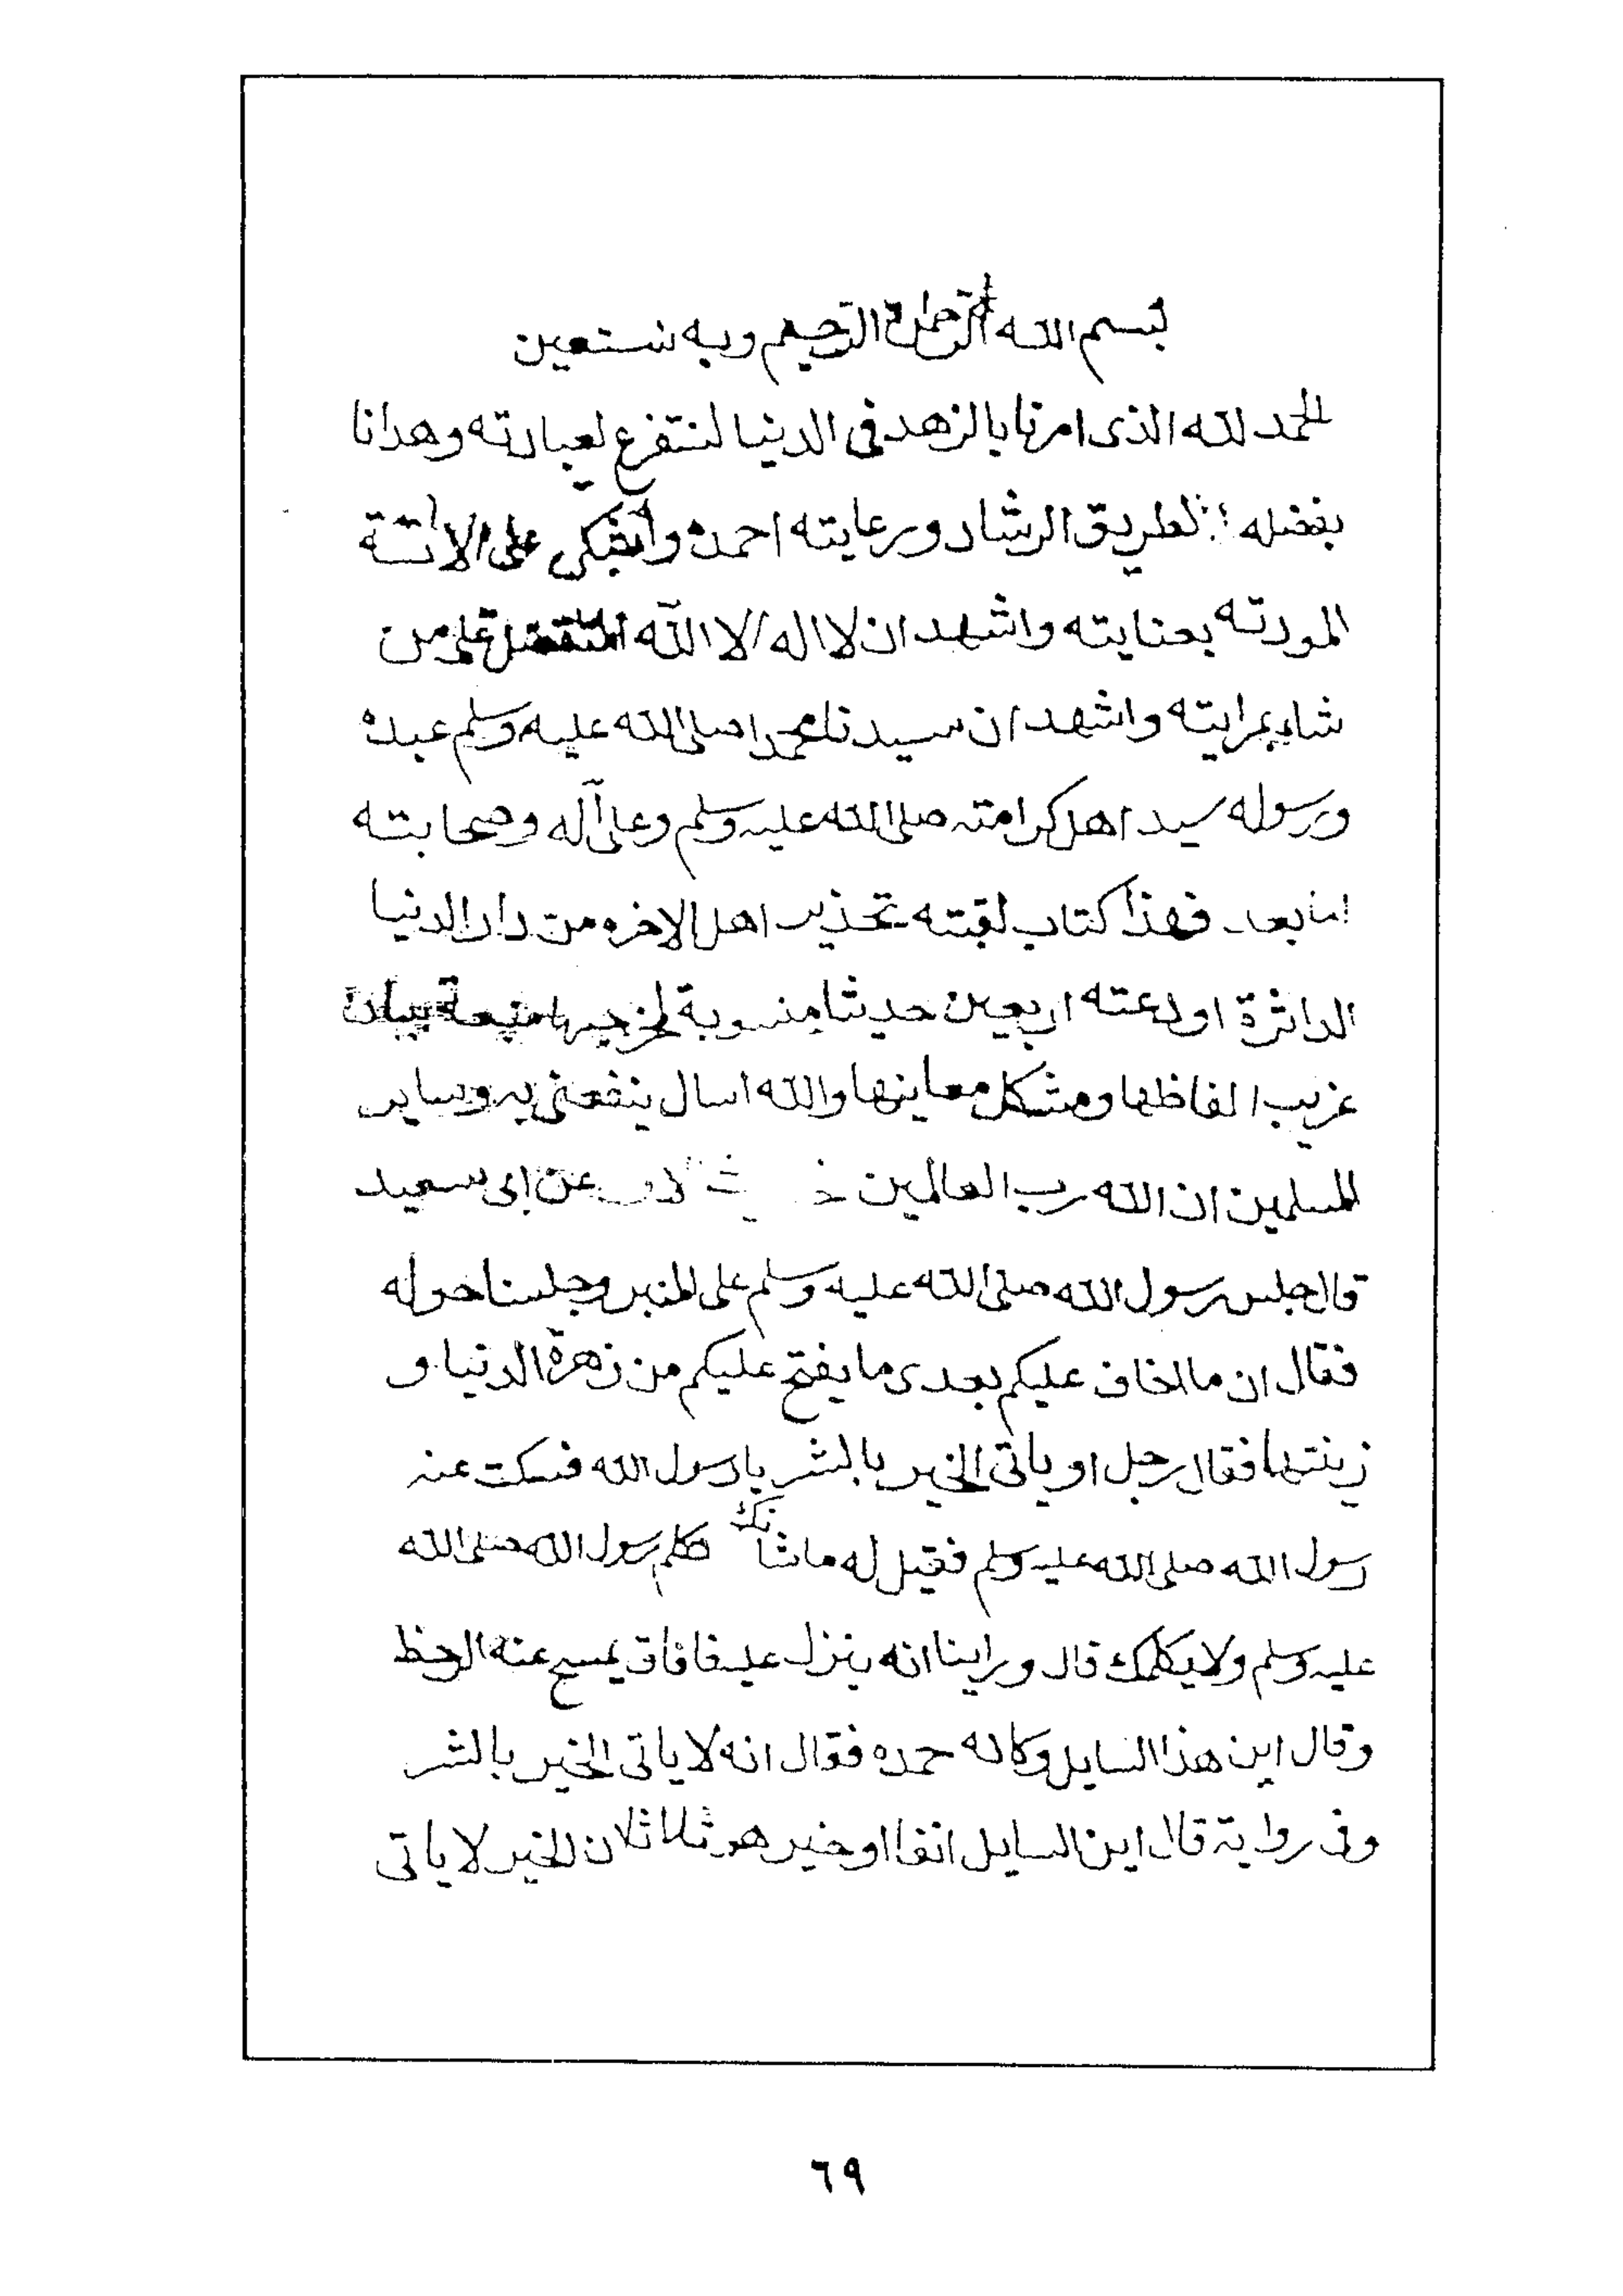 بسم الله الرحمن الرحيم وبه نستعين
الحمد لله الذى امرنا بالزهد فى الدنيا لنتفرغ لعبادته وهدانا
بفضله لطريق الرشاد ورعايته احمده على
بعنايته واشهد ان لا اله الا الله المتفضل على من
شاء واشهد ان سيدنا محمدا صلى الله عليه وسلم عبده
ورسوله سيد اهل كرامته صلى الله عليه وسلم وعلى آله وصحابته
اما بعد فهذا كتاب لقبته تحذير اهل الاخره من دار الدنيا
الداثرة اودعته اربعين حديثا منسوبة لمخرجيها متبعة ببيان
غريب الفاظها ومشكل معاينها والله اسال ينفعنى به وساير
المسلمين ان الله رب العالمين عن ابى سعيد
قال جلس رسول الله صلى الله عليه وسلم على المنبر وجلسنا حوله
فقال ان ما اخاف عليكم بعدى ما يفتح عليكم من زهرة الدنيا و
زينتها فقال رجل او ياتى الخير بالشر يا رسول الله فسكت عنه
رسول الله صلى الله عليه وسلم فقيل له ما شانك تكلم رسول الله صلى الله
عليه وسلم ولا يكلمك قال وراينا انه ينزل عليه فافاق يمسح عنه الرحظ
وقال اين هذا السايل وكانه حمده فقال انه لا ياتى الخير بالشر
وفى رواية قال اين السايل انفا او خير هو ثلاثا ان الخير لا ياتى
٦٩